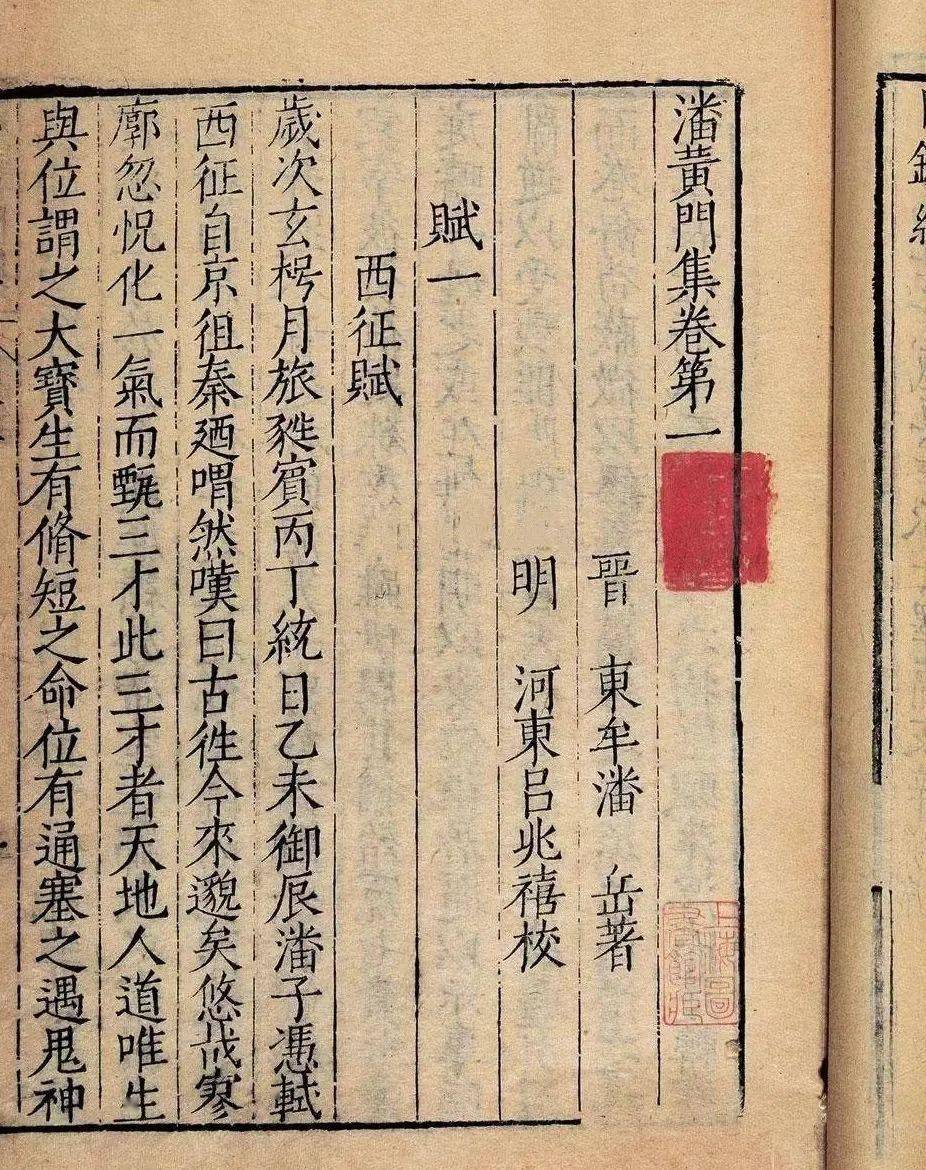 潘黃門集卷第一
晉 東牟潘 岳著
明 河東呂兆禧校
賦一
西征賦
歲次玄枵月旅蕤賓丙丁統日乙未御辰潘子憑軾
西征自京徂秦廼喟然嘆曰古徃今來邈矣悠哉寥
廓忽怳化一氣而甄三才此三才者天地人道唯生
與位謂之大寶生有脩短之命位有通塞之遇鬼神
上海圖書館藏